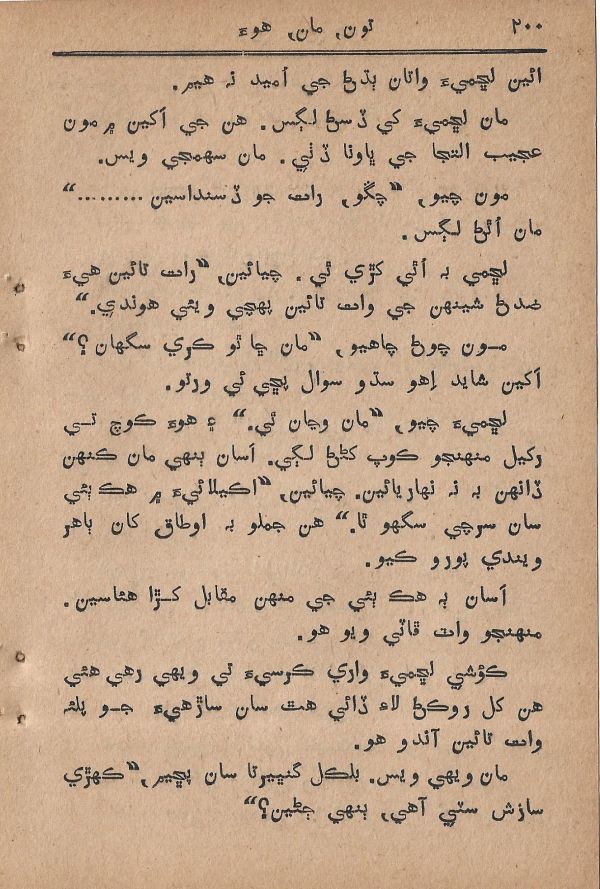 ۲۰۰
تون, مان, هوءِ
ائين لڇميءَ واٽان ٻڌڻ جي اُميد نہ هيم.
مان لڇميءَ کي ڏسڻ لڳس. هن جي اکين ۾ مون
عجيب التجا جي ڀاونا ڏٺي. مان سمهجي ويس.
مون چيو, ”چڱو, رات جو ڏسنداسين.........“
مان اُٿڻ لڳس.
لڇمي بہ اُٿي کڙي ٿي. چيائين, ”رات تائين هيءَ
ضدڻ شينهن جي وات تائين پهچي ويئي هوندي.“
مون چوڻ چاهيو, ”مان ڇا ٿو ڪري سگهان؟“
اکين شايد اِهو سڌو سوال پڇي ئي ورتو.
لڇميءَ چيو, ”مان وڃان ٿي.“ ۽ هوءَ ڪوچ تي
رکيل منهنجو ڪوپ کڻڻ لڳي. اسان ٻنهي مان ڪنهن
ڏانهن بہ نہ نهاريائين. چيائين, ”اڪيلائيءَ ۾ هڪ ٻئي
سان سرچي سگهو ٿا.“ هن جملو بہ اوطاق کان ٻاهر
ويندي پورو ڪيو.
اسان ٻہ هڪ ٻئي جي منهن مقابل کڙا هئاسين.
منهنجو وات ڦاٽي ويو هو.
ڪؤشي لڇميءَ واري ڪرسيءَ تي ويهي رهي هئي
هن کل روڪڻ لاءِ ڏائي هٿ سان ساڙهيءَ جو پلئہ
وات تائين آندو هو.
مان ويهي ويس. بلڪل گنڀيرتا سان پڇيم, ”ڪهڙي
سازش سٽي آهي, ٻنهي ڄڻين؟“